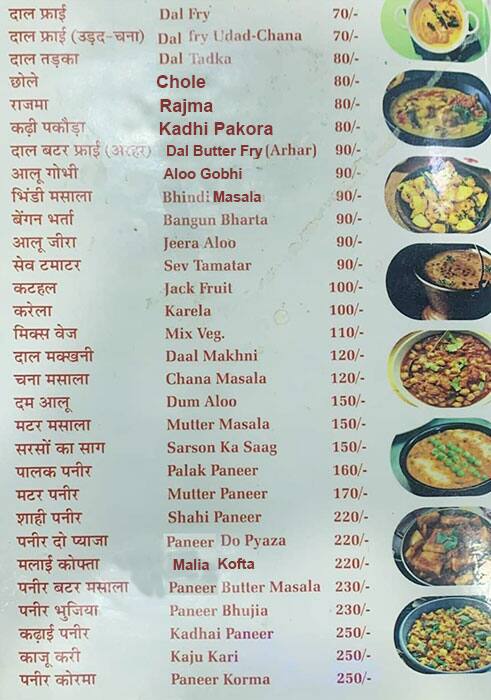 दाल फ्राई Dal Fry 70/-
दाल फ्राई (उड़द-चना) Dal fry Udad-Chana 70/-
दाल तड़का Dal Tadka 80/-
छोले Chole 80/-
राजमा Rajma 80/-
कढ़ी पकौड़ा Kadhi Pakora 80/-
दाल बटर फ्राई (अरहर) Dal Butter Fry (Arhar) 90/-
आलू गोभी Aloo Gobhi 90/-
भिंडी मसाला Bhindi Masala 90/-
बेंगन भर्ता Bangun Bharta 90/-
आलू जीरा Jeera Aloo 90/-
सेव टमाटर Sev Tamatar 90/-
कटहल Jack Fruit 100/-
करेला Karela 100/-
मिक्स वेज Mix Veg. 110/-
दाल मक्खनी Daal Makhni 120/-
चना मसाला Chana Masala 120/-
दम आलू Dum Aloo 150/-
मटर मसाला Mutter Masala 150/-
सरसों का साग Sarson Ka Saag 150/-
पालक पनीर Palak Paneer 160/-
मटर पनीर Mutter Paneer 170/-
शाही पनीर Shahi Paneer 220/-
पनीर दो प्याजा Paneer Do Pyaza 220/-
मलाई कोफ्ता Malia Kofta 220/-
पनीर बटर मसाला Paneer Butter Masala 230/-
पनीर भुजिया Paneer Bhujia 230/-
कढ़ाई पनीर Kadhai Paneer 250/-
काजू करी Kaju Kari 250/-
पनीर कोरमा Paneer Korma 250/-